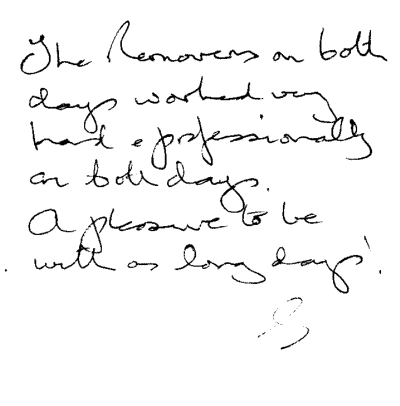 The Removers on both
days worked very
hard & professionally
on both days.
A pleasure to be
with as long days!